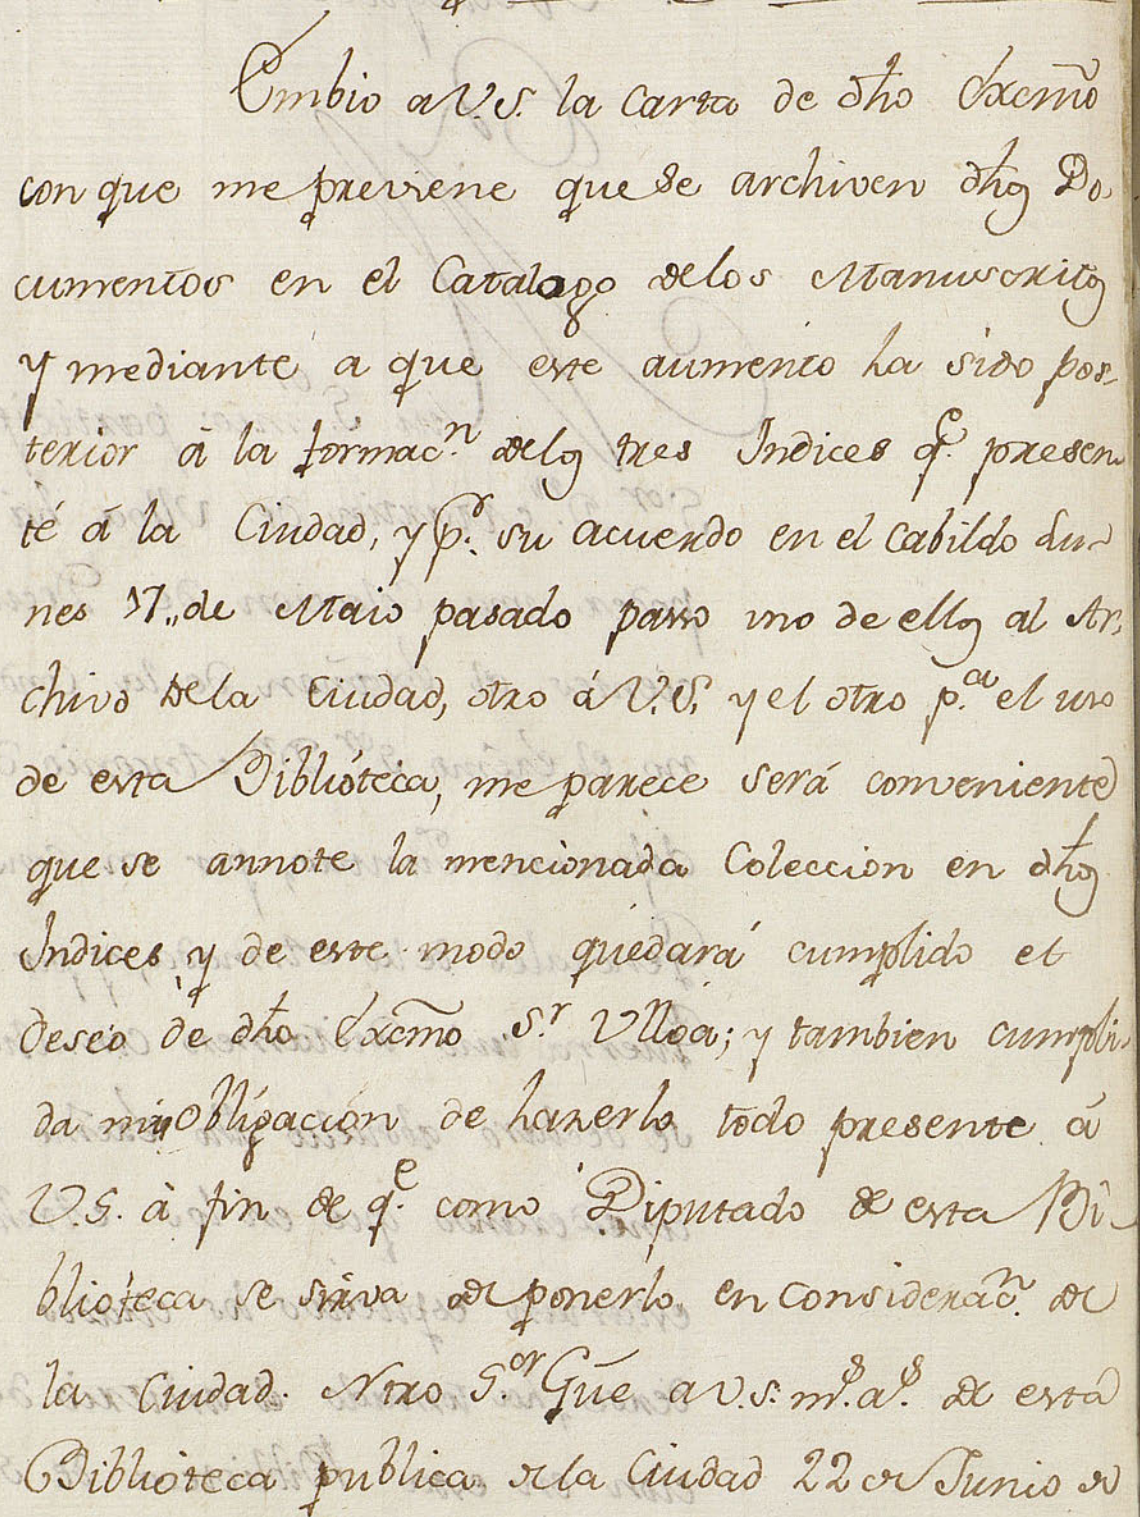 Embio a V.S. la carta de dho Excmo
con que me previene que se archiven dhos Do-
cumentos en el Catalogo de los Manuscritos
y mediante a que este aumento ha sido pos-
terior à la formacn. de los tres Indices qe. presen-
té á la Ciudad, y pr. su acuerdo en el cabildo Lu-
nes 17,, de Maio pasado passo uno de ellos al Ar-
chivo de la Ciudad, otro á V.S. y el otro pa. el uso
de esta Biblióteca, me parece será conveniente
que se annote la mencionada Coleccion en dhos
Indices, y de este modo quedará cumplido el
deseo de dho Excmo Sr. Ulloa; y tambien cumpli-
da mi Obligación de hazerlo todo presente á
V.S. à fin de qe. como Diputado de esta Bi-
blióteca se sirva de ponerlo en Consideracn. de
la Ciudad. Ntro Sor. Gue a V.S. ms. as. de esta
Biblioteca publica de la Ciudad 22 de Junio de